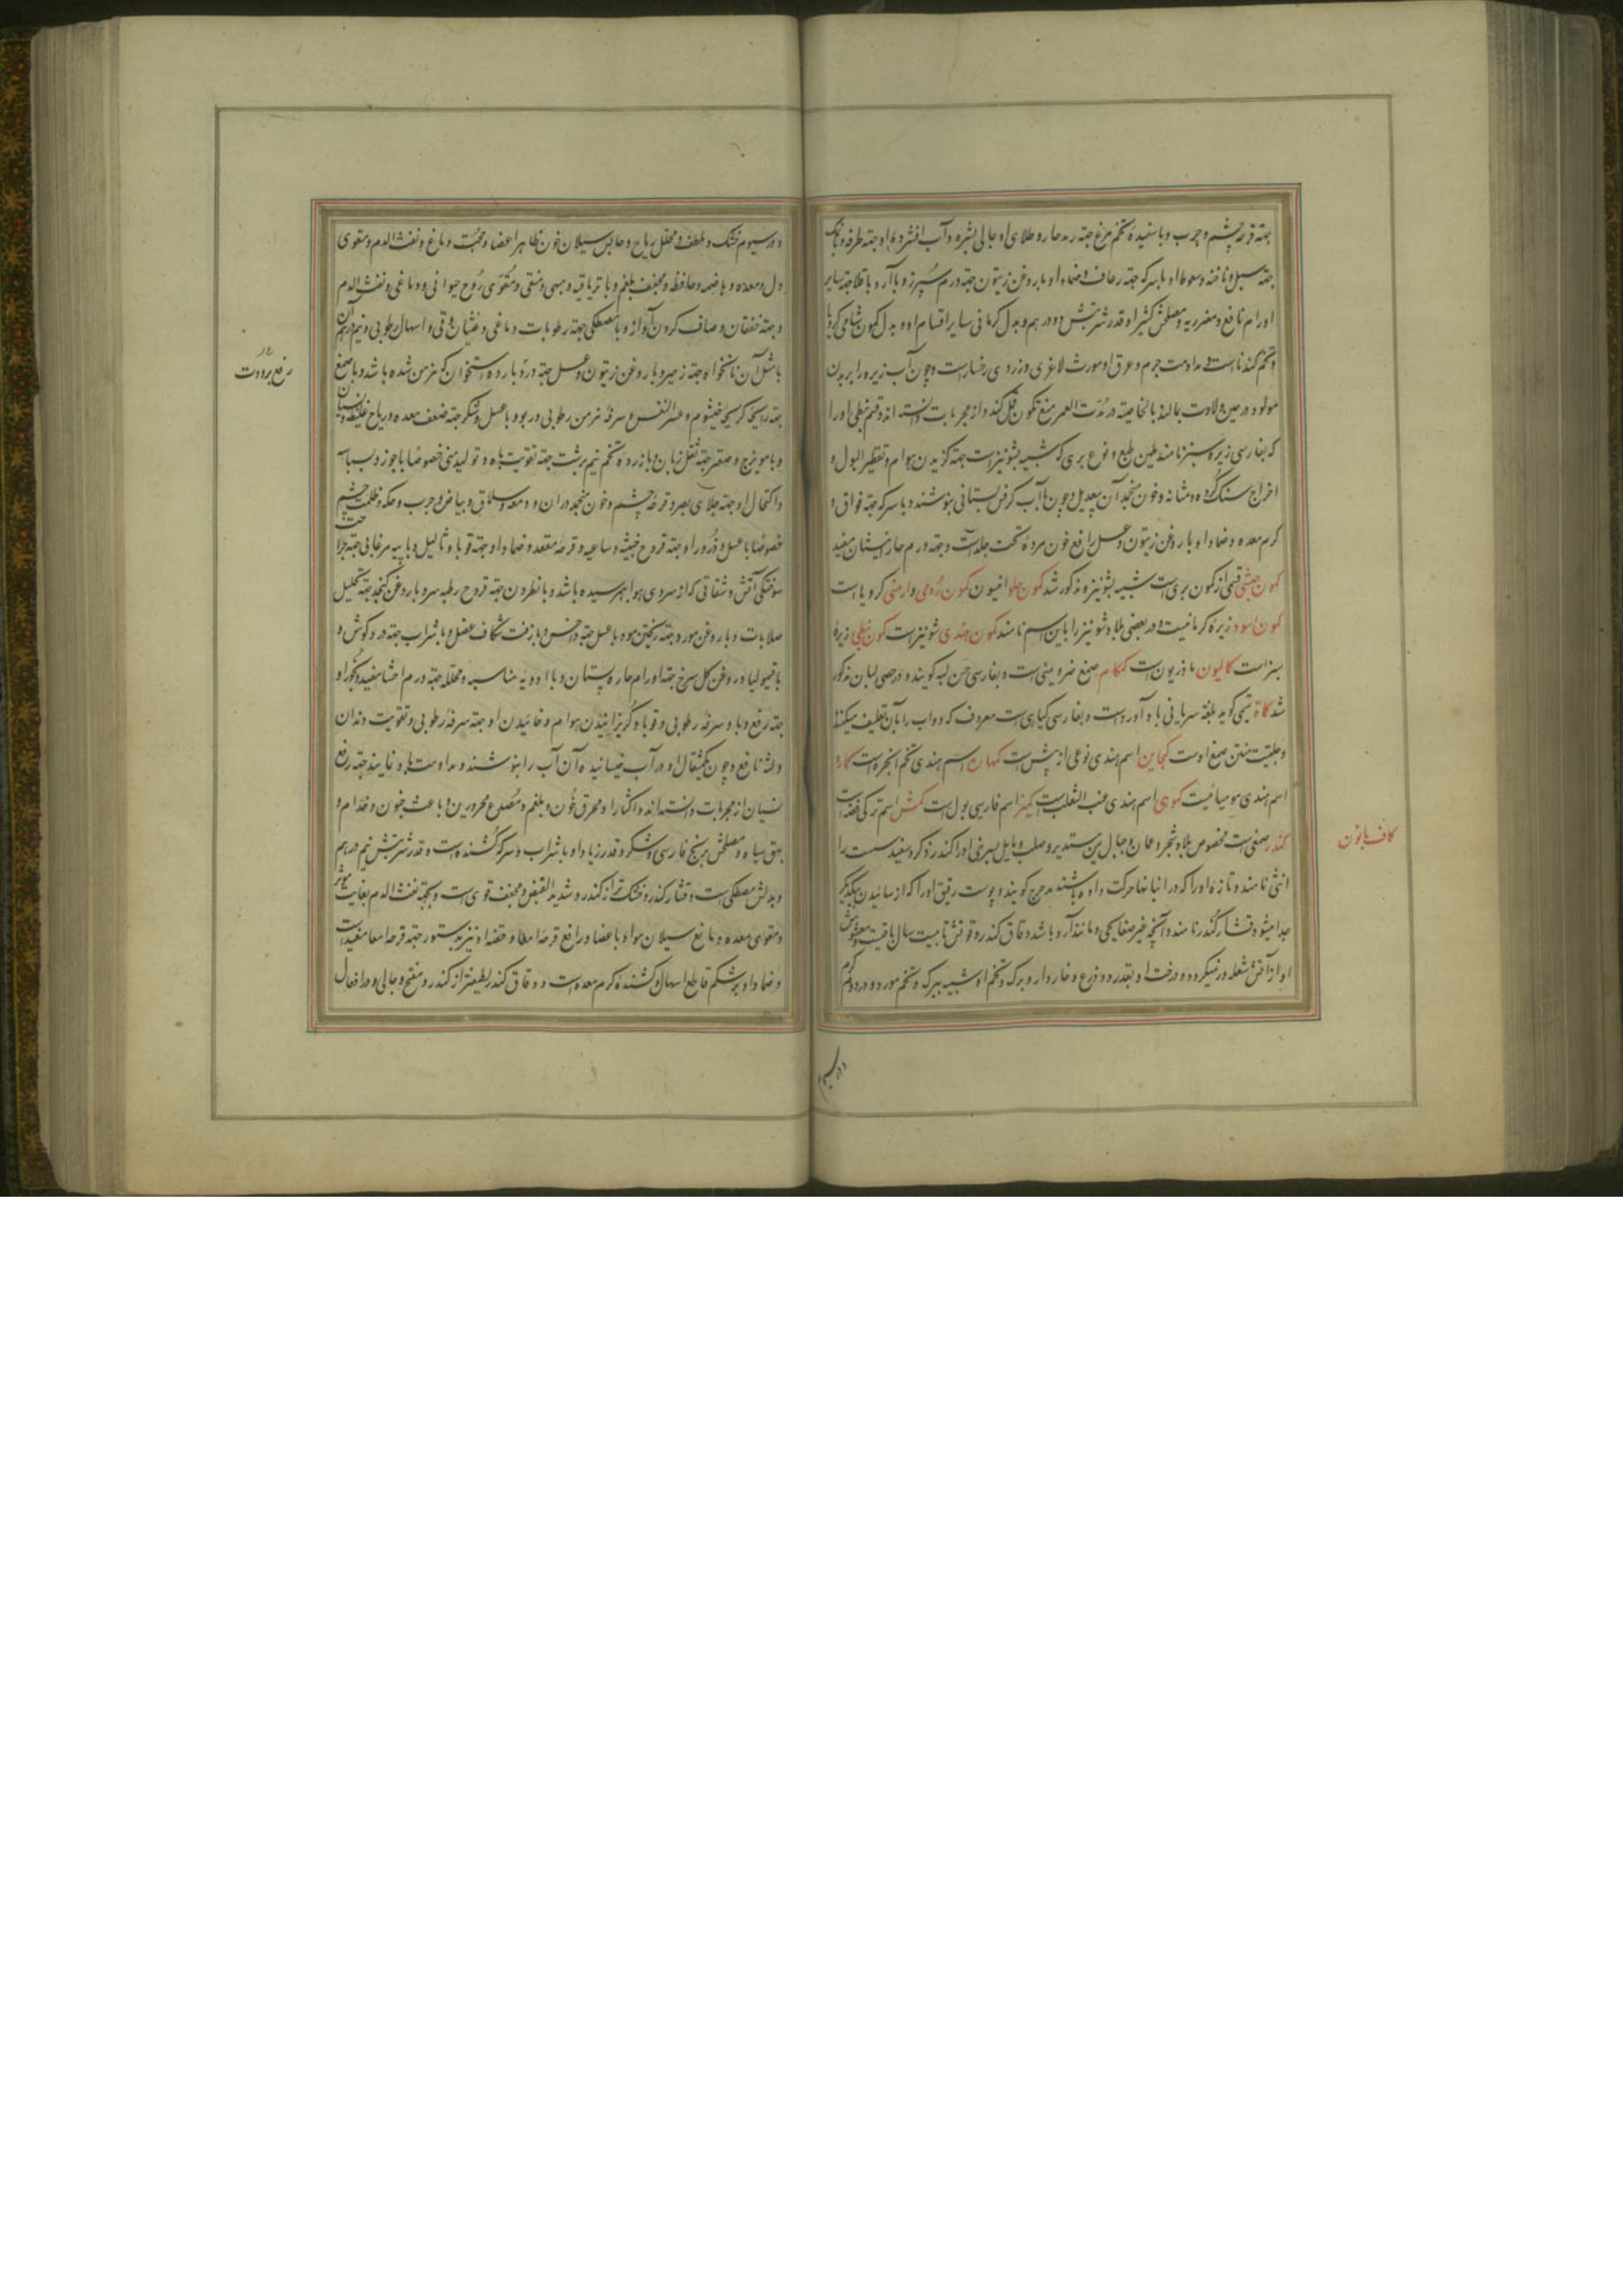 جهته قرحه چشم و جرب و با سفیده تخم مرغ جهته رمد حاره و طلای او جالی بشره و آب افشرده او جهته طرفه و با نمک
جهته سبل و ناخنه و سعوط او با سرکه جهته رعاف و ضماد او با روغن زیتون جهته ورم سپرز و با آرد باقلا جهته سایر
اورام نافع و مضر ریه و مصلحش کتیرا و قدر شربتش دو درهم و بدل کرمانی سایر اقسام او و بدل کمون شامی کرویا
و تخم گندناست و مداومت جرم و عرق او مورث لاغری و زردی رخسار است و چون آب زیره را بر بدن
مولود در حین ولادت بمالند بالخاصیه در مدت العمر منع تکون قمل کند و از مجربات دانسته اند و قسم نبطی او را
که بفارسی زیره سبز نامند ملین طبع و نوع بری که شبیه بشونیز است جهته گزیدن هوام و تقطیر البول و
اخراج سنگ گرده و مثانه و خون منجمد آن بیعدیل و چون با آب کرفس بستانی بنوشند و با سرکه جهته فواق و
کرم معده و ضماد او با روغن زیتون و عسل رافع خون مرده تحت جلد است و جهته ورم حار انثیان مفید
کمون حبشی قسمی از کمون بری است شبیه بشونیز و مذکور شد کمون حلو انیسون کمون رومی و ارمنی کرویا است
کمون اسود زیره کرمانیست و در بعضی بلاد شونیز را باین اسم نامند کمون هندی شونیز است کمون نبطی زیره
سبز است کمالیون ماذریون است کمکام صمغ ضرو یمنی است و بفارسی حسن لبه گویند و در حصی لبان مذکور
شد کماة تمیمی گوید بلغة سریانی باد آورد است و بفارسی گیاهی است معروف که دواب را بآن تعلیف میکنند
و حلتیت منتن صمغ اوست کمجاین اسم هندی نوعی از پش است کمهان اسم هندی تخم انجره است کمارد
اسم هندی مومیائیست کموهی اسم هندی عنب الثعلب است کمیز اسم فارسی بول است کمش اسم ترکی فضه است
کاف با نون
کندر صمغی است مخصوص بلاد شجر و عمان و جبال یمن مستدیر و صلب و مایل بسرخی او را کندر ذکر و سفید سست را
انثی نامند و تازه او را که در انبانها حرکت داده باشند مدحرج گویند و پوست رقیق او را که از سائیدن بیکدیگر
جدا میشود قشار کندر نامند و آنچه غیر صفایحی و مانند آرد باشد دقاق کندر و قوتش تا بیست سال باقیست و مغشوش
او از آتش شعله در نمیگیرد و درخت او بقدر دو ذرع و خاردار و برگ و تخم او شبیه ببرگ و تخم مورد و در دوم گرم
در سیم
و در سیوم خشک و ملطف و محلل ریاح و حابس سیلان خون ظاهر اعضا و حجب دماغ و نفث الدم و مقوی
دل و معده و هاضمه و حافظه و مجفف بلغم و با تریاقیه و مبهی و منقی و مقوی روح حیوانی و دماغی و نفث الدم
و جهته خفقان و صاف کردن آواز و با مصطکی جهته رطوبات دماغی و غثیان و قی و اسهال رطوبی و نیم درهم آن
با مثل آن نانخواه جهته زحیر و با روغن زیتون و عسل جهته درد بارده استخوان که مزمن شده باشد و با صمغ
رفع برودت
جهته ریحه کریهه خیشوم و عسر النفس و سرفه مزمن رطوبی و ربو و با عسل و شکر جهته ضعف معده و ریاح غلیظه و نسیان
و با مویزج و صعتر جهته ثقل زبان و با زرده تخم نیم برشت جهته تقویت باه و تولید منی خصوصا با جوز و بسباسه
و اکتحال او جهته جلای بصر و قرحه چشم و خون منجمد در آن و دمعه و سلاق و بیاض و جرب و حکه و ظلمت چشم
خصوصا با عسل و ذرور او جهته قروح خبیثه و ساعیه و قرحه مقعد و ضماد او جهته قوبا و ثالیل و با پیه مرغابی جهته جراحت
سوختگی آتش و شقاقی که از سردی هوا بهم رسیده باشد و با نطرون جهته قروح رطبه سر و با روغن کنجد جهته تحلیل
صلابات و با روغن مورد جهته ریختن مو و با عسل جهته داخس و با زفت شکاف عضل و با شراب جهته درد گوش و
با قیمولیا و روغن گل سرخ جهته اورام حاره پستان و با ادویه مناسبه و محلله جهته ورم احشا مفید و بخور او
جهته رفع وبا و سرفه رطوبی و قوبا و گریزانیدن هوام و خائیدن او جهته سرفه رطوبی و تقویت دندان
و لثه نافع و چون یکمثقال او در آب خیسانیده آن آب را بنوشند و مداومت باو نمایند جهته رفع
نسیان از مجربات دانسته اند و اکثار او محرق خون و بلغم و مصدع محرورین و باعث جنون و جذام و
بهق سیاه و مصلحش برنج فارسی و شکر و قدر زیاد او با شراب و سرکه کشنده است و قدر شربتش نیم درهم
و بدلش مصطکی است و قشار کندر خشک تر از کندر و شدید القبض و مجفف قوی است و بجهته نفث الدم بغایت موثر
و مقوی معده و مانع سیلان مواد باعضا و رافع قرحه امعا و حقنه او نیز بدستور جهته قرحه امعا مفید است
و ضماد او بر شکم قاطع اسهال و کشنده کرم معده است و دقاق کندر لطیفتر از کندر و منضج و جالی و در افعال